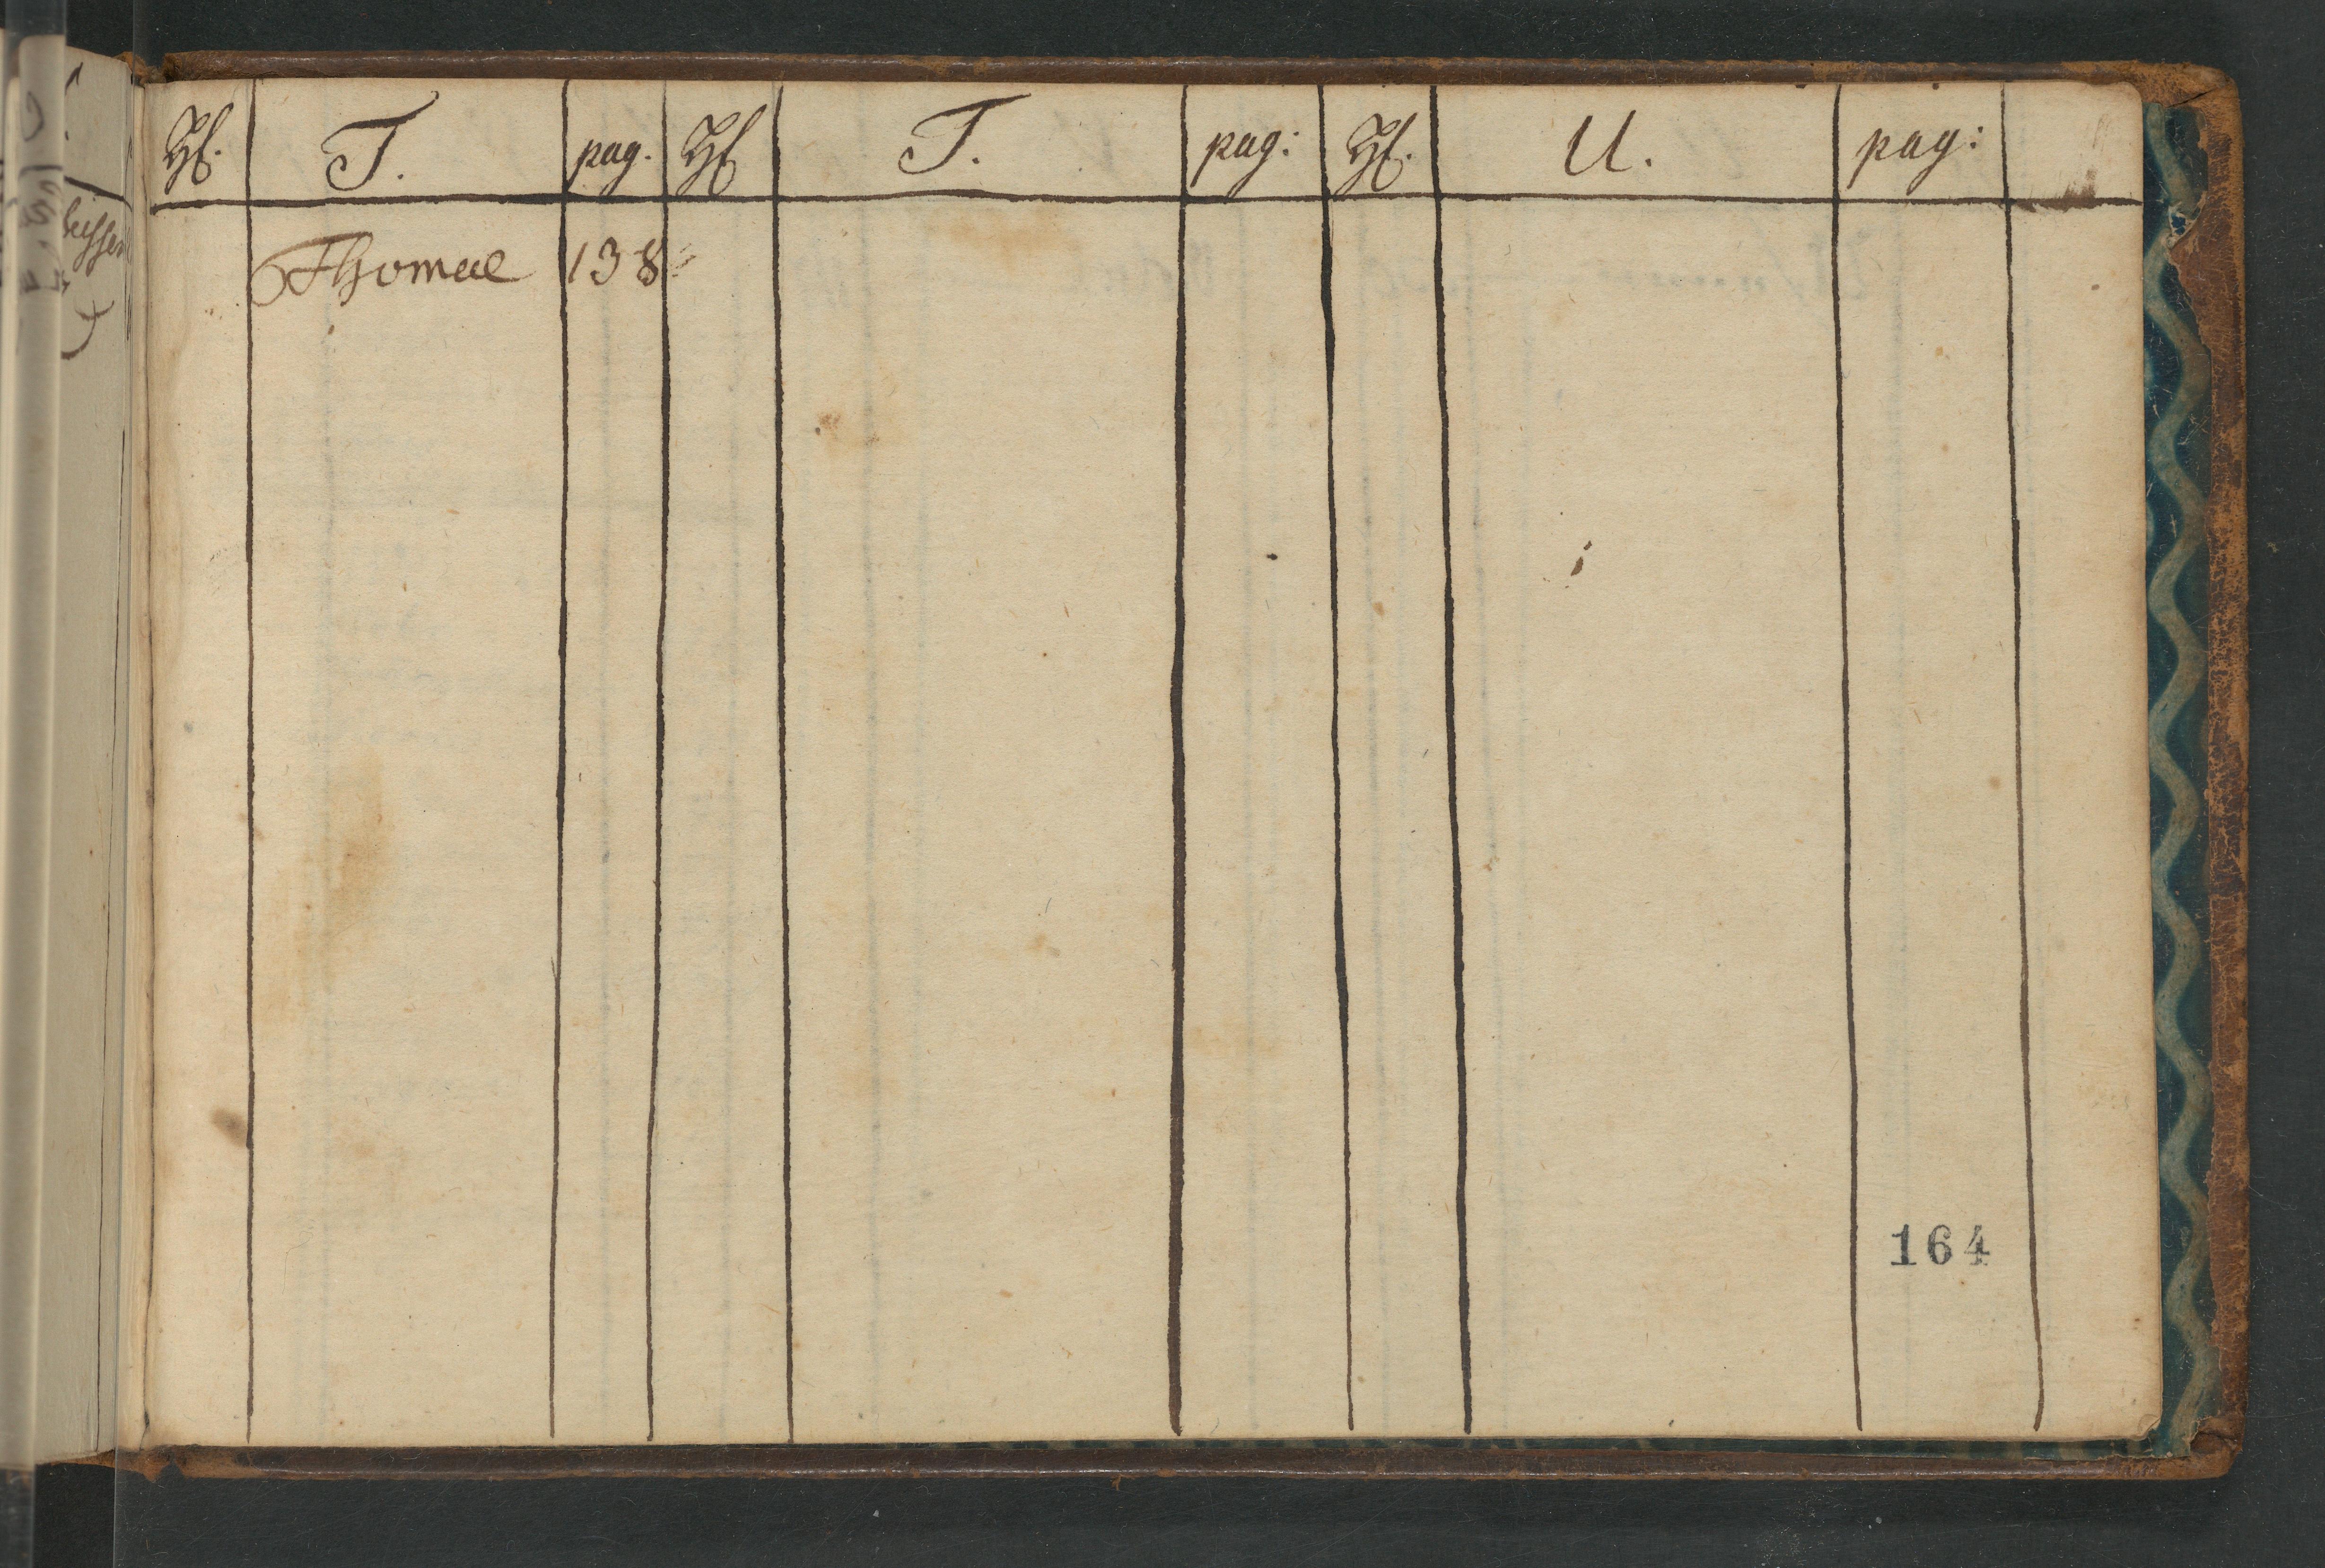 Hℓ. T. pag. Hℓ T. pag: Hℓ. U. pag:
Thomae 138
164